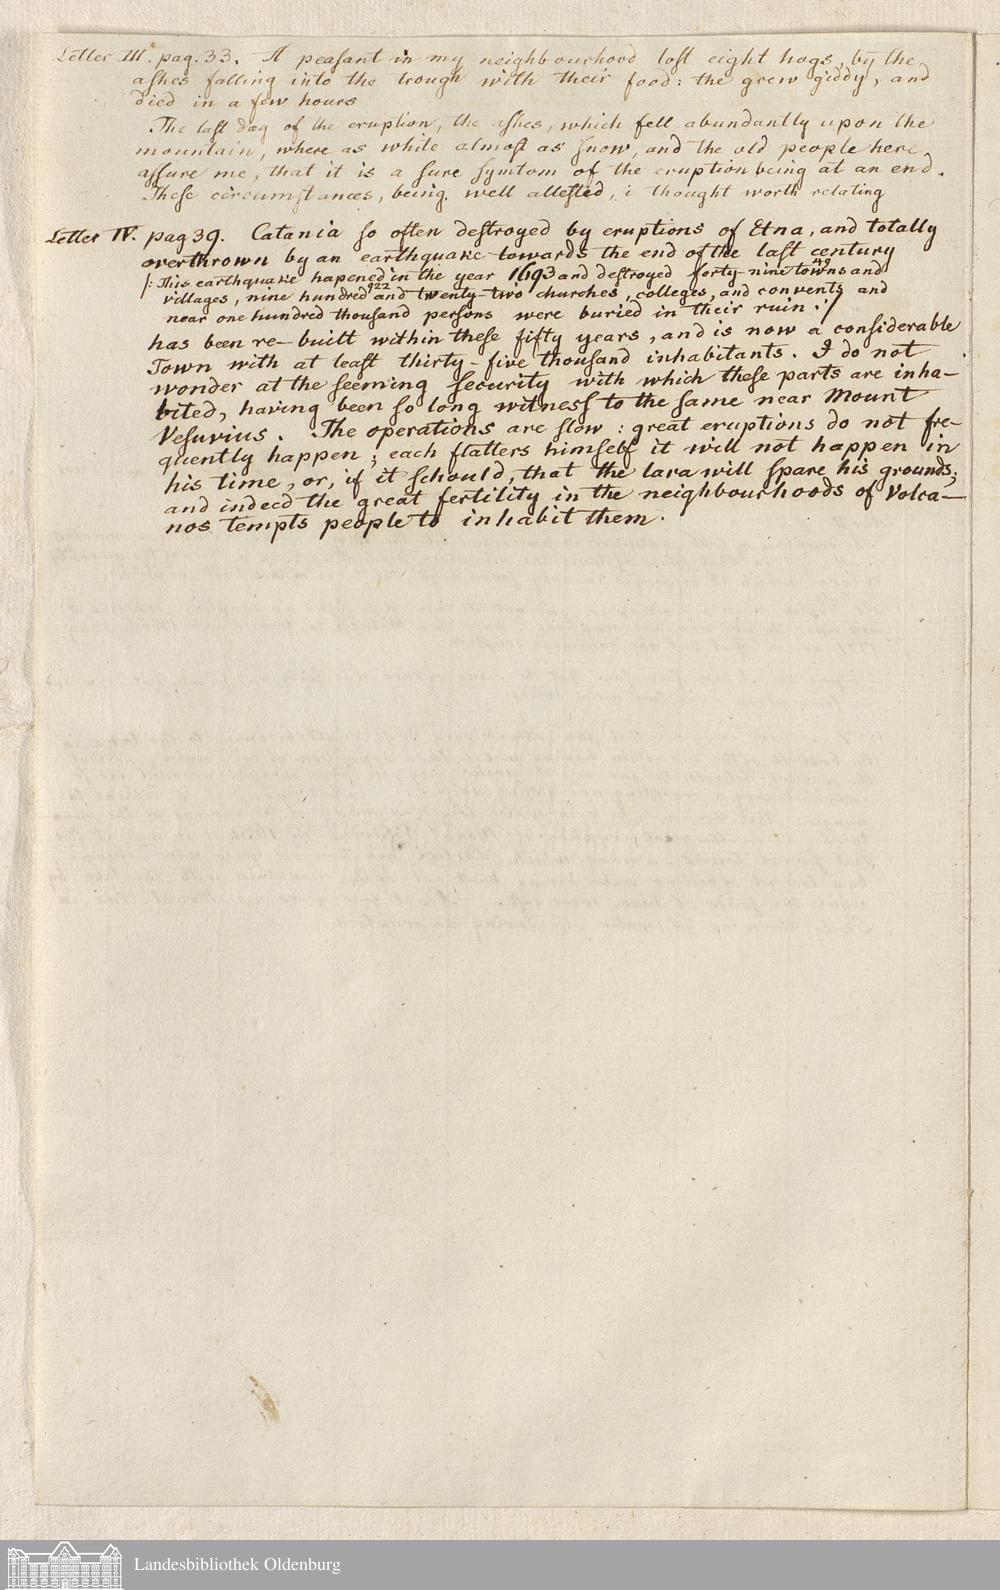 Letter III. pag. 33. A peaſant in my neighbourhood loſt eight hogs, by the
aſhes falling into the trough with their food: the grew giddy, and
died in a few hours
The laſt day of the eruption, the aſhes, which fell abundantly upon the
mountain, where as white almoſt as ſnow, and the old people here
aſſure me, that it is a ſure ſymtom of the eruption being at an end.
Theſe circumſtances, being well atteſted, i thought worth relating
Letter IV. pag 39. Catania ſo often deſtroyed by eruptions of Etna, and totally
overthrown by an earthquake towards the end of the laſt century
/: This earthquake hapened in the year 1693 and deſtroyed forty-nine towns and
49
villages, nine hundred and twenty-two churches, colleges, and convents and
922
near one hundred thouſand perſons were buried in their ruin :/
has been re-built within theſe fifty years, and is now a conſiderable
Town with at leaſt thirty-five thouſand inhabitants. I do not
wonder at the ſeeming ſecurity with which theſe parts are inha-
bited, having been ſo long witneſs to the ſame near Mount
Veſuvius. The operations are ſlow : great eruptions do not fre-
quently happen ; each flatters himſelf it will not happen in
his time, or, if it ſchould, that the lava will ſpare his grounds;
and indeed the great fertility in the neighbourhoods of Volca-
nos tempts people to inhabit them.
Landesbibliothek Oldenburg